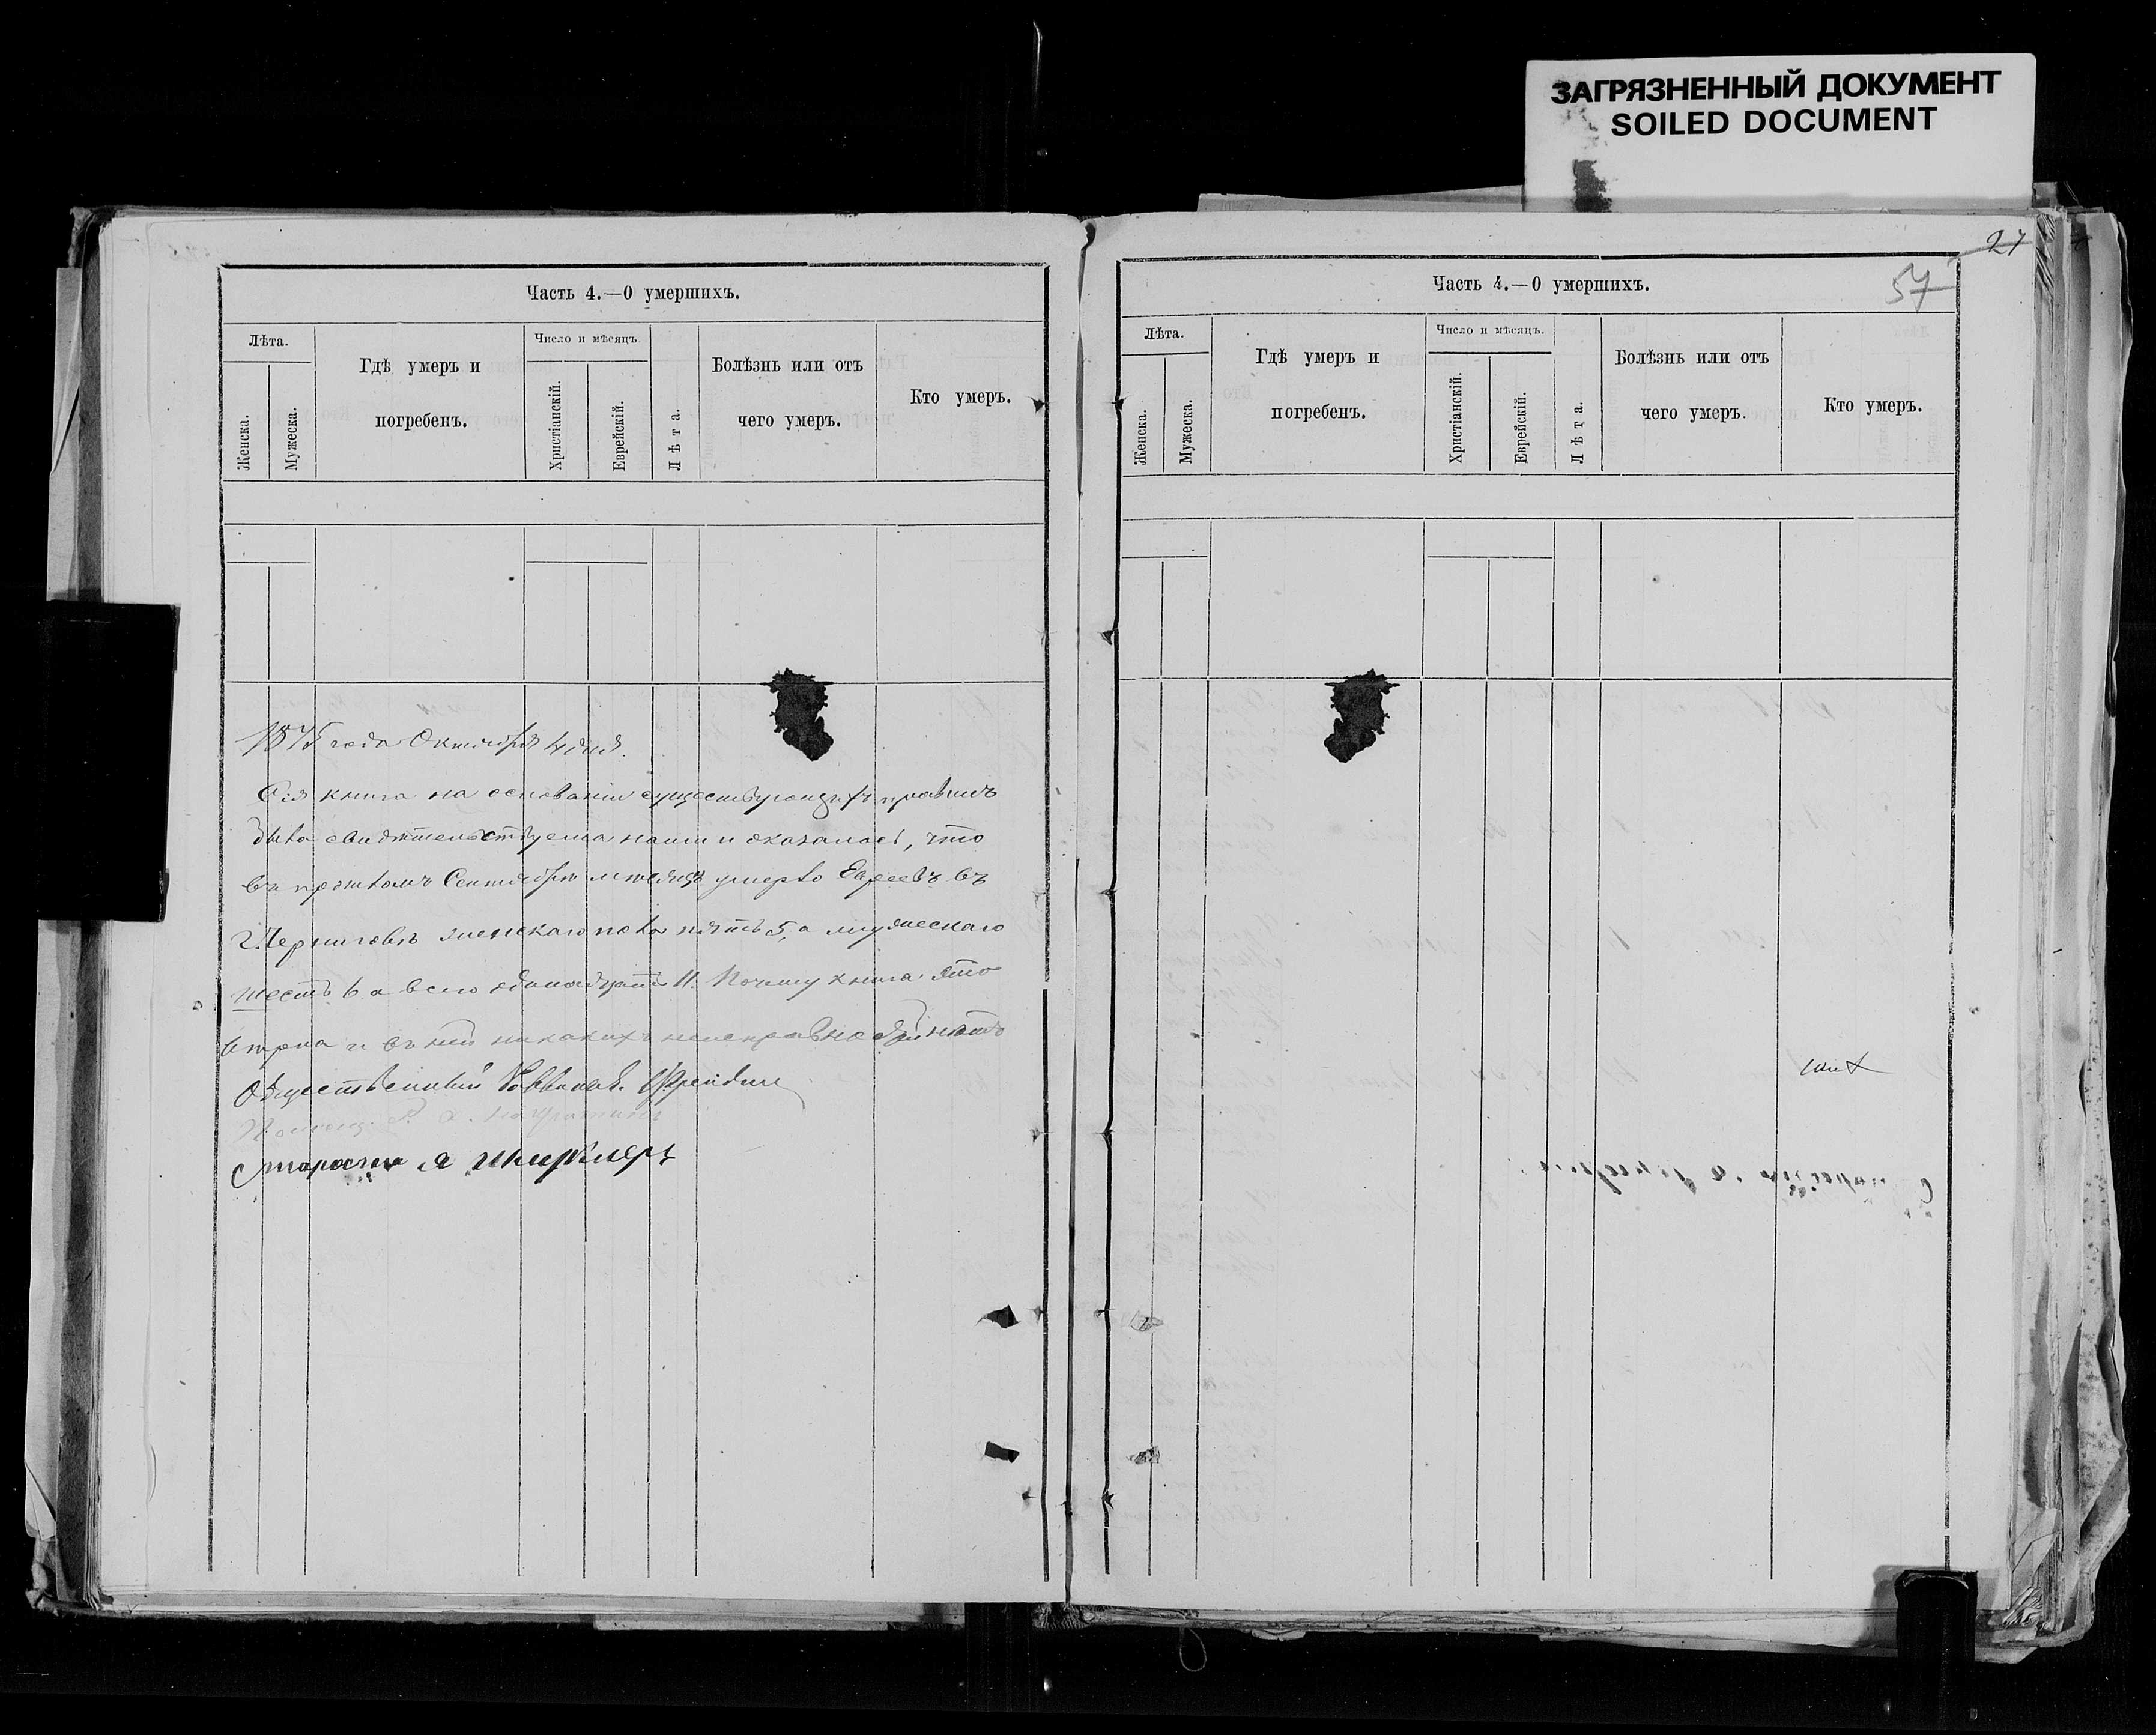 ЗАГРЯЗНЕННЫЙ ДОКУМЕНТ
SOILED DOCUMENT
Часть 4.—О умершихъ.
Лѣта.
Женска.
Мужеска.
Гдѣ умеръ и
погребенъ.
Число и мѣсяцъ.
Христіанскій.
Еврейскій.
Лѣта.
Болѣзнь или отъ
чего умеръ.
Кто умеръ.
1875 года Октября 4 дня.
Сія книга на основаніи существующихъ правилъ
была свидѣтельствуема нами и оказалось, что
въ прошломъ Сентябрѣ мѣсяцѣ умерло Евреевъ въ
г. Черниговѣ женскаго пола пять 5, а мужескаго
шесть 6 а всего одинадцать 11. Почему книга эта
вѣрна и въ ней никакихъ неисправностей нѣтъ
Общественный Раввинъ
Староста
27
57
Часть 4.—О умершихъ.
Лѣта.
Женска.
Мужеска.
Гдѣ умеръ и
погребенъ.
Число и мѣсяцъ.
Христіанскій.
Еврейскій.
Лѣта.
Болѣзнь или отъ
чего умеръ.
Кто умеръ.